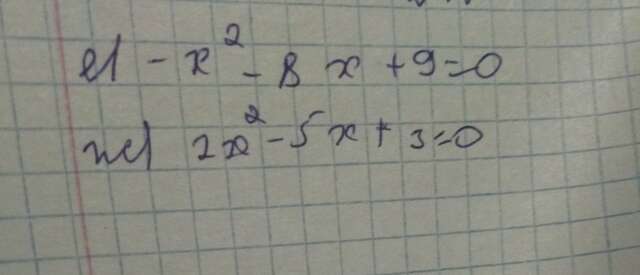 е) -x² - 8x + 9 = 0
ж) 2x² - 5x + 3 = 0